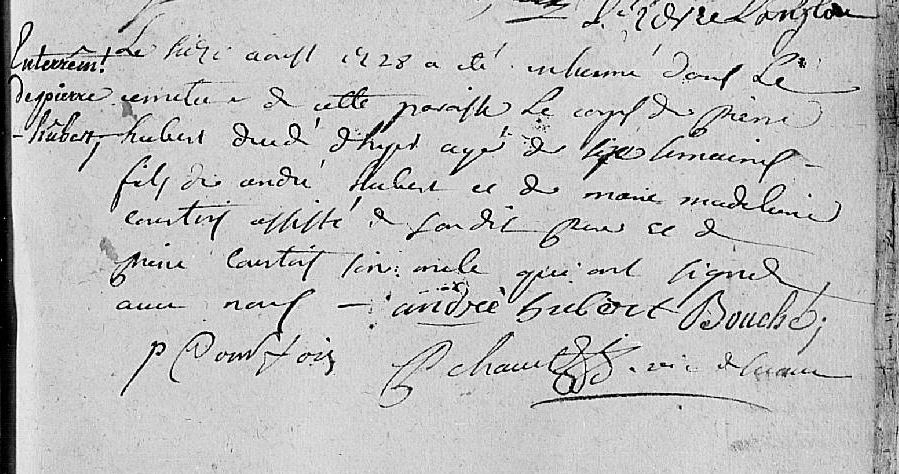 Pierre Langlois
Enterrem!
de pierre
-hubert,
Le aoust 1728 a été inhumé dans Le
cemetiere de cette paroisse Le corps de pierre
hubert decedé d'hyer agé de six semaines -
fils de andré hubert et de marie madelaine
courtois assisté de son dit pere et de
pierre Courtois son oncle qui ont signé
avec nous - andrè hubert Bouché,
p Courtois